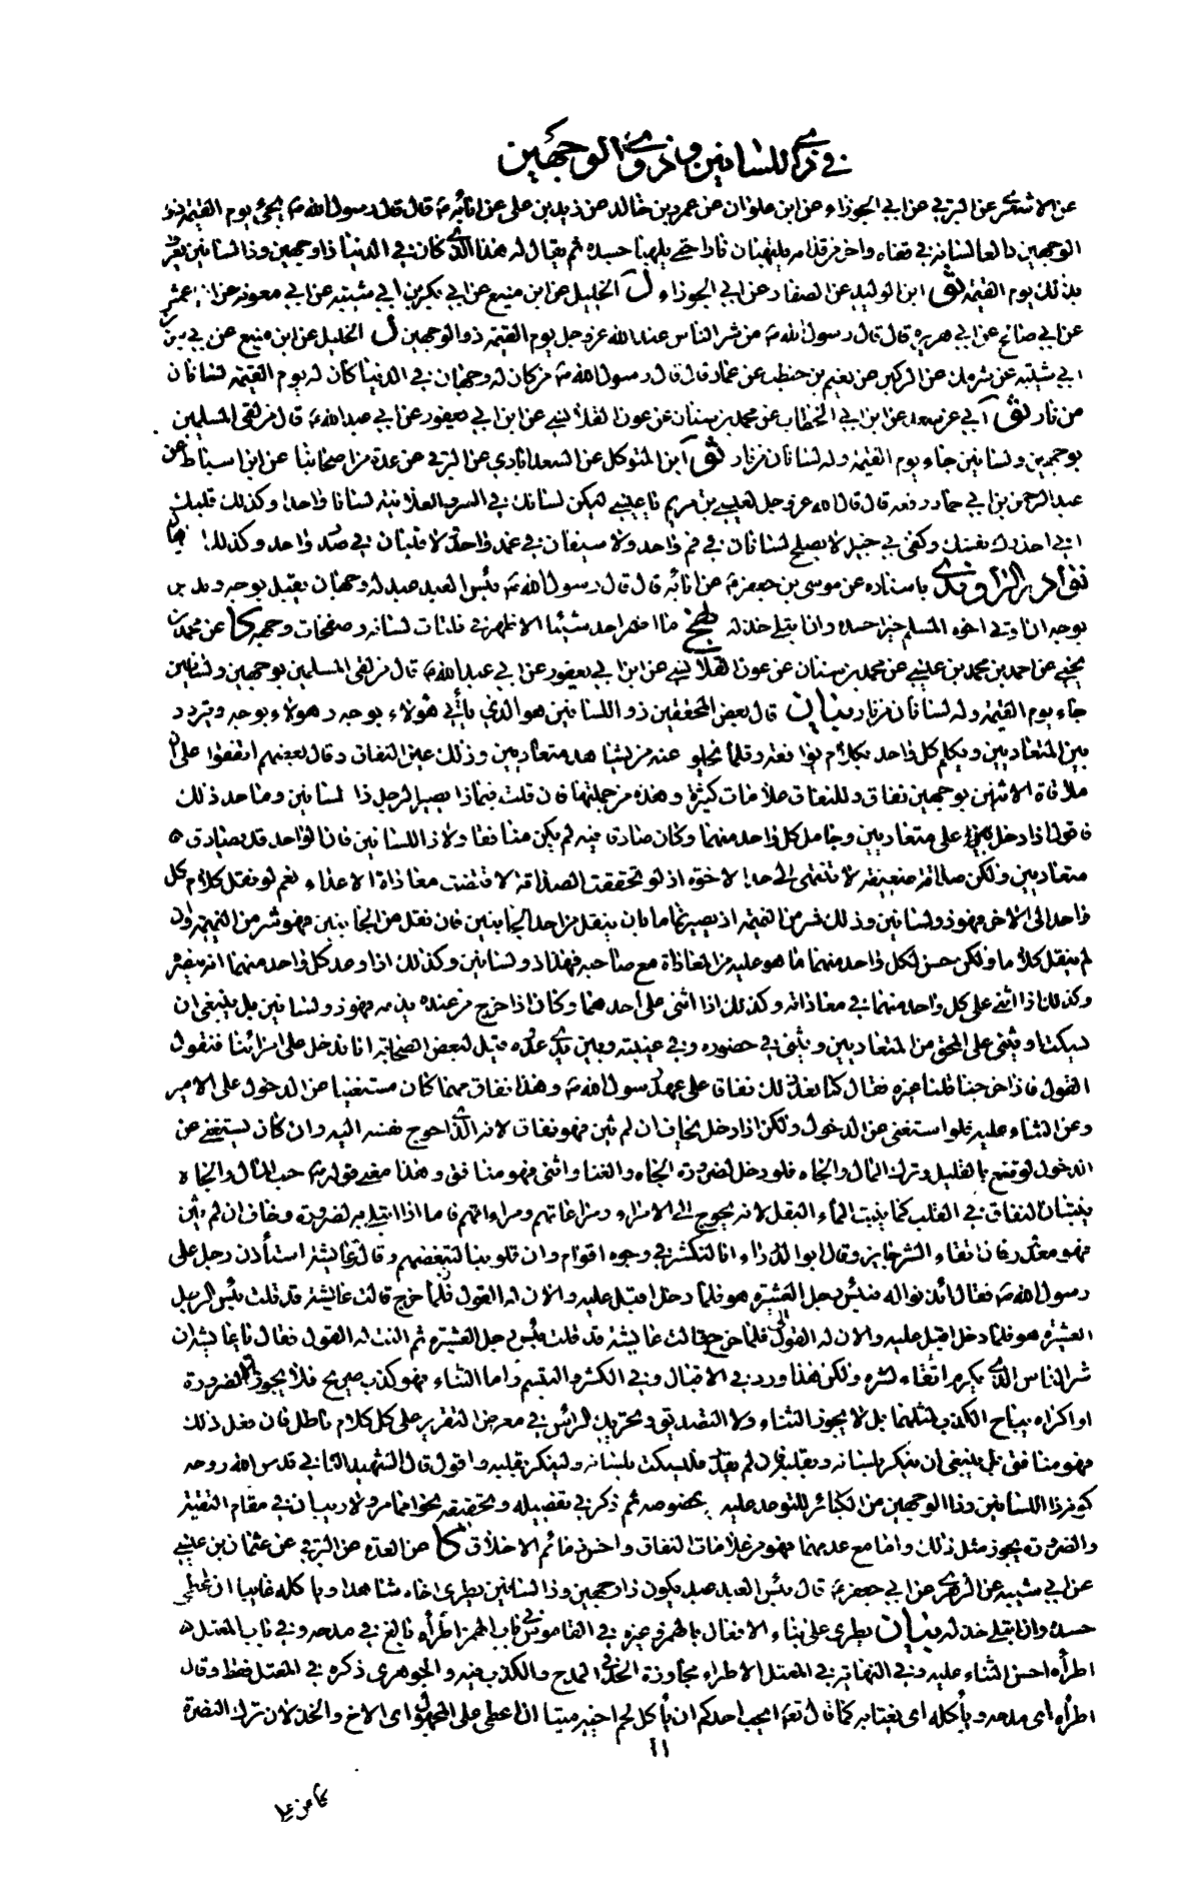 في ذي اللسانين وذي الوجهين
عن الأشعري عن البرقي عن أبي الجوزاء عن ابن علوان عن عمرو بن خالد عن زيد بن علي عن آبائه ع قال قال رسول الله ص يجيء يوم القيمة ذو
الوجهين دالعا لسانه في قفاه وآخر من قدامه يلتهبان نارا حتى يلهبا جسده ثم يقال له هذا الذي كان في الدنيا ذا وجهين وذا لسانين يعرف
بذلك يوم القيمة ثو ابن الوليد عن الصفار عن أبي الجوزاء ل الخليل عن ابن منيع عن أبي بكر بن أبي شيبة عن أبي معوية عن الأعمش
عن أبي صالح عن أبي هريرة قال قال رسول الله ص من شر الناس عند الله عز وجل يوم القيمة ذو الوجهين ل الخليل عن ابن منيع عن أبي بكر بن
أبي شيبة عن شريك عن الركين عن نعيم بن حنظلة عن عمار قال قال رسول الله ص من كان له وجهان في الدنيا كان له يوم القيمة لسانان
من نار ثو أبي عن سعد عن ابن أبي الخطاب عن محمد بن سنان عن عون القلانسي عن ابن أبي يعفور عن أبي عبد الله ع قال من لقي المسلمين
بوجهين ولسانين جاء يوم القيمة وله لسانان من نار ثو ابن المتوكل عن السعدآبادي عن البرقي عن عدة من أصحابنا عن ابن اسباط عن
عبد الرحمن بن أبي حماد رفعه قال قال الله عز وجل لعيسى بن مريم يا عيسى ليكن لسانك في السر والعلانية لسانا واحدا وكذلك قلبك
اني احذرك نفسك وكفى بي خبيرا لا يصلح لسانان في فم واحد ولا سيفان في غمد واحد ولا قلبان في صدر واحد وكذلك الاذهان
نوادر الراوندي باسناده عن موسى بن جعفر ع عن آبائه قال قال رسول الله ص بئس العبد عبد له وجهان يقبل بوجه ويدبر
بوجه ان أوتي أخوه المسلم خيرا حسده وان ابتلي خذله نهج ما اضمر احد شيئا الا ظهر في فلتات لسانه وصفحات وجهه كا عن محمد بن
يحيى عن احمد بن محمد بن عيسى عن محمد بن سنان عن عون القلانسي عن ابن أبي يعفور عن أبي عبد الله ع قال من لقي المسلمين بوجهين ولسانين
جاء يوم القيمة وله لسانان من نار بيان قال بعض المحققين ذو اللسانين هو الذي يأتي هؤلاء بوجه وهؤلاء بوجه ويتردد
بين المتعاديين ويكلم كل واحد بكلام يوافقه وقلما يخلو عنه من يشاهد متعاديين وذلك عين النفاق وقال بعضهم اتفقوا على ان
ملاقاة الاثنين بوجهين نفاق وللنفاق علامات كثيرة وهذه من جملتها فان قلت فبماذا يصير الرجل ذا لسانين وما حد ذلك
فاقول إذا دخل على متعاديين وجامل كل واحد منهما وكان صادقا فيه لم يكن منافقا ولا ذا اللسانين فان الواحد قد يصادق
متعاديين ولكن صداقة ضعيفة لا تنتهي إلى حد الاخوة إذ لو تحققت الصداقة لاقتضت معاداة الاعداء نعم لو نقل كلام كل
واحد إلى الآخر فهو ذو لسانين وذلك شر من النميمة إذ يصير نماما بان ينقل من احد الجانبين فان نقل من الجانبين فهو شر من النميمة وان
لم ينقل كلاما ولكن حسن لكل واحد منهما ما هو عليه من المعاداة مع صاحبه فهذا ذو لسانين وكذلك إذا وعد كل واحد منهما انه ينصره
وكذلك إذا اثنى على كل واحد منهما في معاداته وكذلك إذا اثنى على احدهما وكان إذا خرج من عنده يذمه فهو ذو لسانين بل ينبغي ان
يسكت أو يثني على المحق من المتعاديين ويثني في حضوره وفي غيبته وبين يدي عدوه قيل لبعض الصحابة انا ندخل على امرائنا فنقول
القول فاذا خرجنا قلنا غيره فقال كنا نعد ذلك نفاقا على عهد رسول الله ص وهذا نفاق مهما كان مستغنيا عن الدخول على الامير
وعن الثناء عليه فلو استغنى عن الدخول ولكن إذا دخل يخاف ان لم يثن فهو نفاق لانه الذي احوج نفسه اليه وان كان يستغني عن
الدخول لو قنع بالقليل وترك المال والجاه فلو دخل لضرورة الجاه والغنا واثنى فهو منافق وهذا معنى قوله ص حب المال والجاه
ينبتان النفاق في القلب كما ينبت الماء البقل لانه يحوج إلى الامراء ومراعاتهم ومراءاتهم فاما إذا ابتلي به لضرورة وخاف ان لم يثن
فهو معذور فان اتقاء الشر جائز وقال أبو الدرداء انا لنكشر في وجوه اقوام وان قلوبنا لتبغضهم وقالت عايشة استأذن رجل على
رسول الله ص فقال ائذنوا له فبئس رجل العشيرة هو فلما دخل اقبل عليه والان له القول فلما خرج قالت عايشة قد قلت بئس الرجل
العشيرة هو فلما دخل اقبل عليه والان له القول فلما خرج قالت عايشة قد قلت بئس رجل العشيرة ثم النت له القول فقال يا عايشة ان
شر الناس الذي يكرم اتقاء لشره ولكن هذا ورد في الاقبال وفي الكشر والتبسم واما الثناء فهو كذب صريح فلا يجوز الا لضرورة
او اكراه يباح الكذب لمثلهما بل لا يجوز الثناء ولا التصديق وتحريك الرأس في معرض التقرير على كل كلام باطل فان فعل ذلك
فهو منافق بل ينبغي ان ينكر بلسانه وبقلبه فان لم يقدر فليسكت بلسانه ولينكر بقلبه واقول قال الشهيد الثاني قدس الله روحه
كونه ذا اللسانين وذا الوجهين من الكبائر للتوعد عليه بخصوصه ثم ذكر في تفصيله وتحقيقه نحوا مما مر ولا ريب ان في مقام التقية
والضرورة يجوز مثل ذلك واما مع عدمهما فهو من علامات النفاق واخس ذمائم الاخلاق كا عن العدة عن البرقي عن عثمان بن عيسى
عن أبي شيبة عن الزهري عن أبي جعفر ع قال بئس العبد عبد يكون ذا وجهين وذا لسانين يطري اخاه شاهدا ويأكله غايبا ان اعطي
حسده وان ابتلي خذله بيان يطري على بناء الافعال بالهمز وغيره في القاموس في باب الهمز اطرأه بالغ في مدحه وفي باب المعتل
اطرأه احسن الثناء عليه وفي النهاية في المعتل الاطراء مجاوزة الحد في المدح والكذب فيه والجوهري ذكره في المعتل فقط وقال
اطرأه أي مدحه ويأكله أي يغتابه كما قال تع ايحب احدكم ان يأكل لحم اخيه ميتا ان اعطي على المجهول أي الاخ والخذلان ترك النصرة
١١
كا عن علي